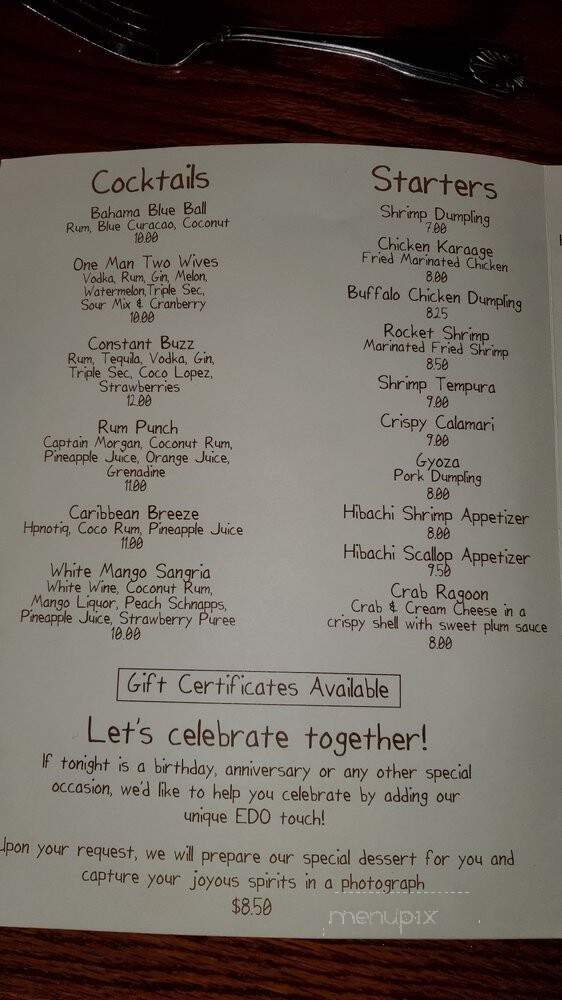 Cocktails
Bahama Blue Ball
Rum, Blue Curacao, Coconut
10.00
One Man Two Wives
Vodka, Rum, Gin, Melon,
Watermelon,Triple Sec,
Sour Mix & Cranberry
10.00
Constant Buzz
Rum, Tequila, Vodka, Gin,
Triple Sec, Coco Lopez,
Strawberries
12.00
Rum Punch
Captain Morgan, Coconut Rum,
Pineapple Juice, Orange Juice,
Grenadine
11.00
Caribbean Breeze
Hpnotiq, Coco Rum, Pineapple Juice
11.00
White Mango Sangria
White Wine, Coconut Rum,
Mango Liquor, Peach Schnapps,
Pineapple Juice, Strawberry Puree
10.00
Starters
Shrimp Dumpling
7.00
Chicken Karaage
Fried Marinated Chicken
8.00
Buffalo Chicken Dumpling
8.25
Rocket Shrimp
Marinated Fried Shrimp
8.50
Shrimp Tempura
9.00
Crispy Calamari
9.00
Gyoza
Pork Dumpling
8.00
Hibachi Shrimp Appetizer
8.00
Hibachi Scallop Appetizer
9.50
Crab Ragoon
Crab & Cream Cheese in a
crispy shell with sweet plum sauce
8.00
Gift Certificates Available
Let's celebrate together!
If tonight is a birthday, anniversary or any other special
occasion, we'd like to help you celebrate by adding our
unique EDO touch!
Upon your request, we will prepare our special dessert for you and
capture your joyous spirits in a photograph
$8.50
menupix